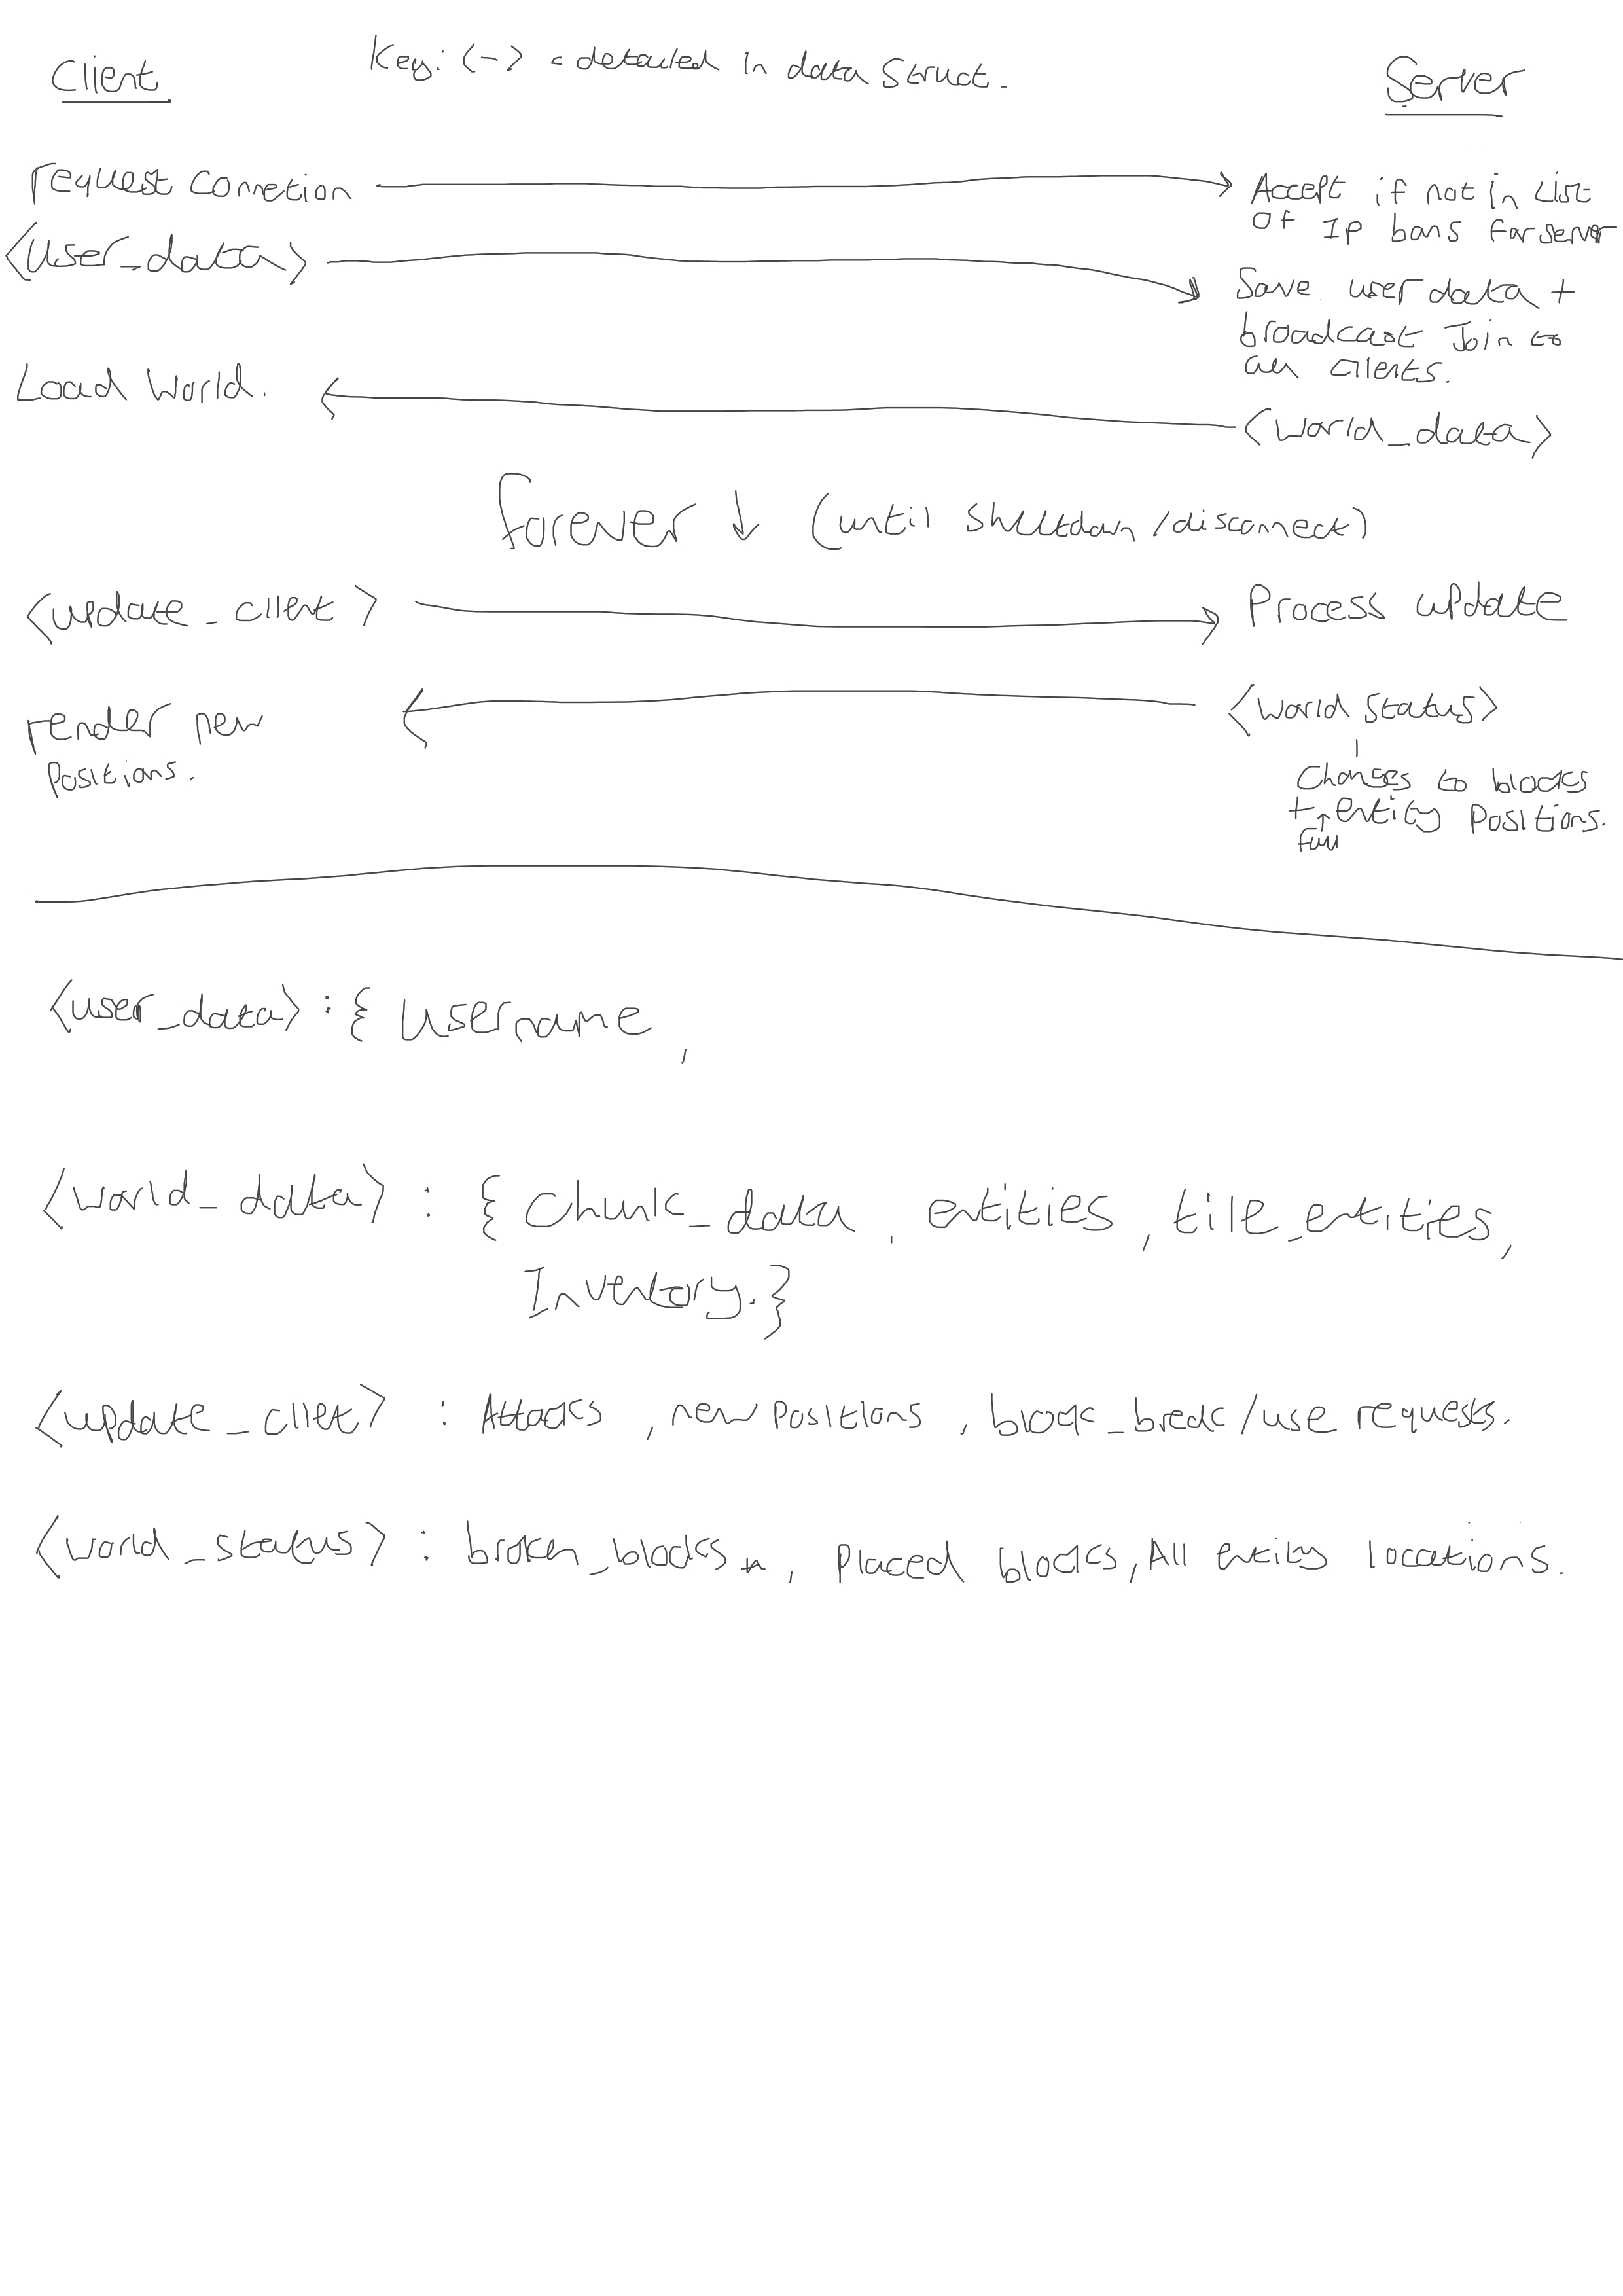 Client
Key: <-> = detailed in data struct.
Server
request connetion
Accept if not in List
of Ip bans for server
<user_data>
Save user data +
broadcast Join to
all clients.
Load World.
<world_data>
forever ↓ (until shutdown/disconnect)
<update_client>
Process update
render new
positions.
<world status>
Changes to blocks
+ entity positions.
↑
full
<user_data> : { username ,
<world_data> : { chunk_data , entities , tile_entities,
Inventory. }
<update_cliet> : Attacks , new positions , block_break/use requests.
<world_status> : broken_blocks , Placed blocks, All entity locations.